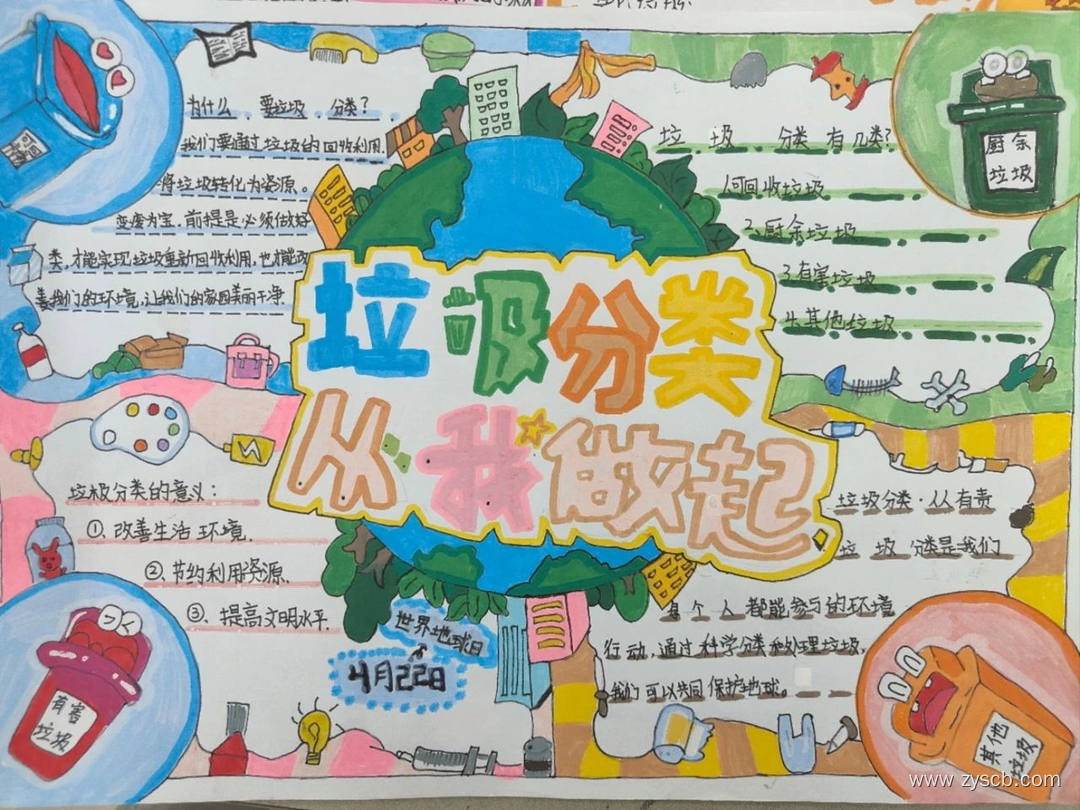 垃圾分类
从我做起
为什么 要垃圾 分类？
我们要通过垃圾的回收利用
将垃圾转化为资源。
变废为宝。前提是必须做好
类，才能实现垃圾重新回收利用，也才能改
善我们的环境，让我们的家园美丽干净.
垃 圾 分类 有几类？
1.可回收垃圾
2.厨余垃圾
3.有害垃圾
4.其他垃圾
厨余
垃圾
垃圾分类的意义：
①. 改善生活 环境.
②. 节约利用资源.
③. 提高文明水平.
有害
垃圾
世界地球日
4月22日
垃圾分类·从有责
垃 圾 分类是我们
每 个 人 都能参与的环境
行动，通过科学分类和处理垃圾，
我们可以共同保护地球。
其他
垃圾
www.zyscb.com